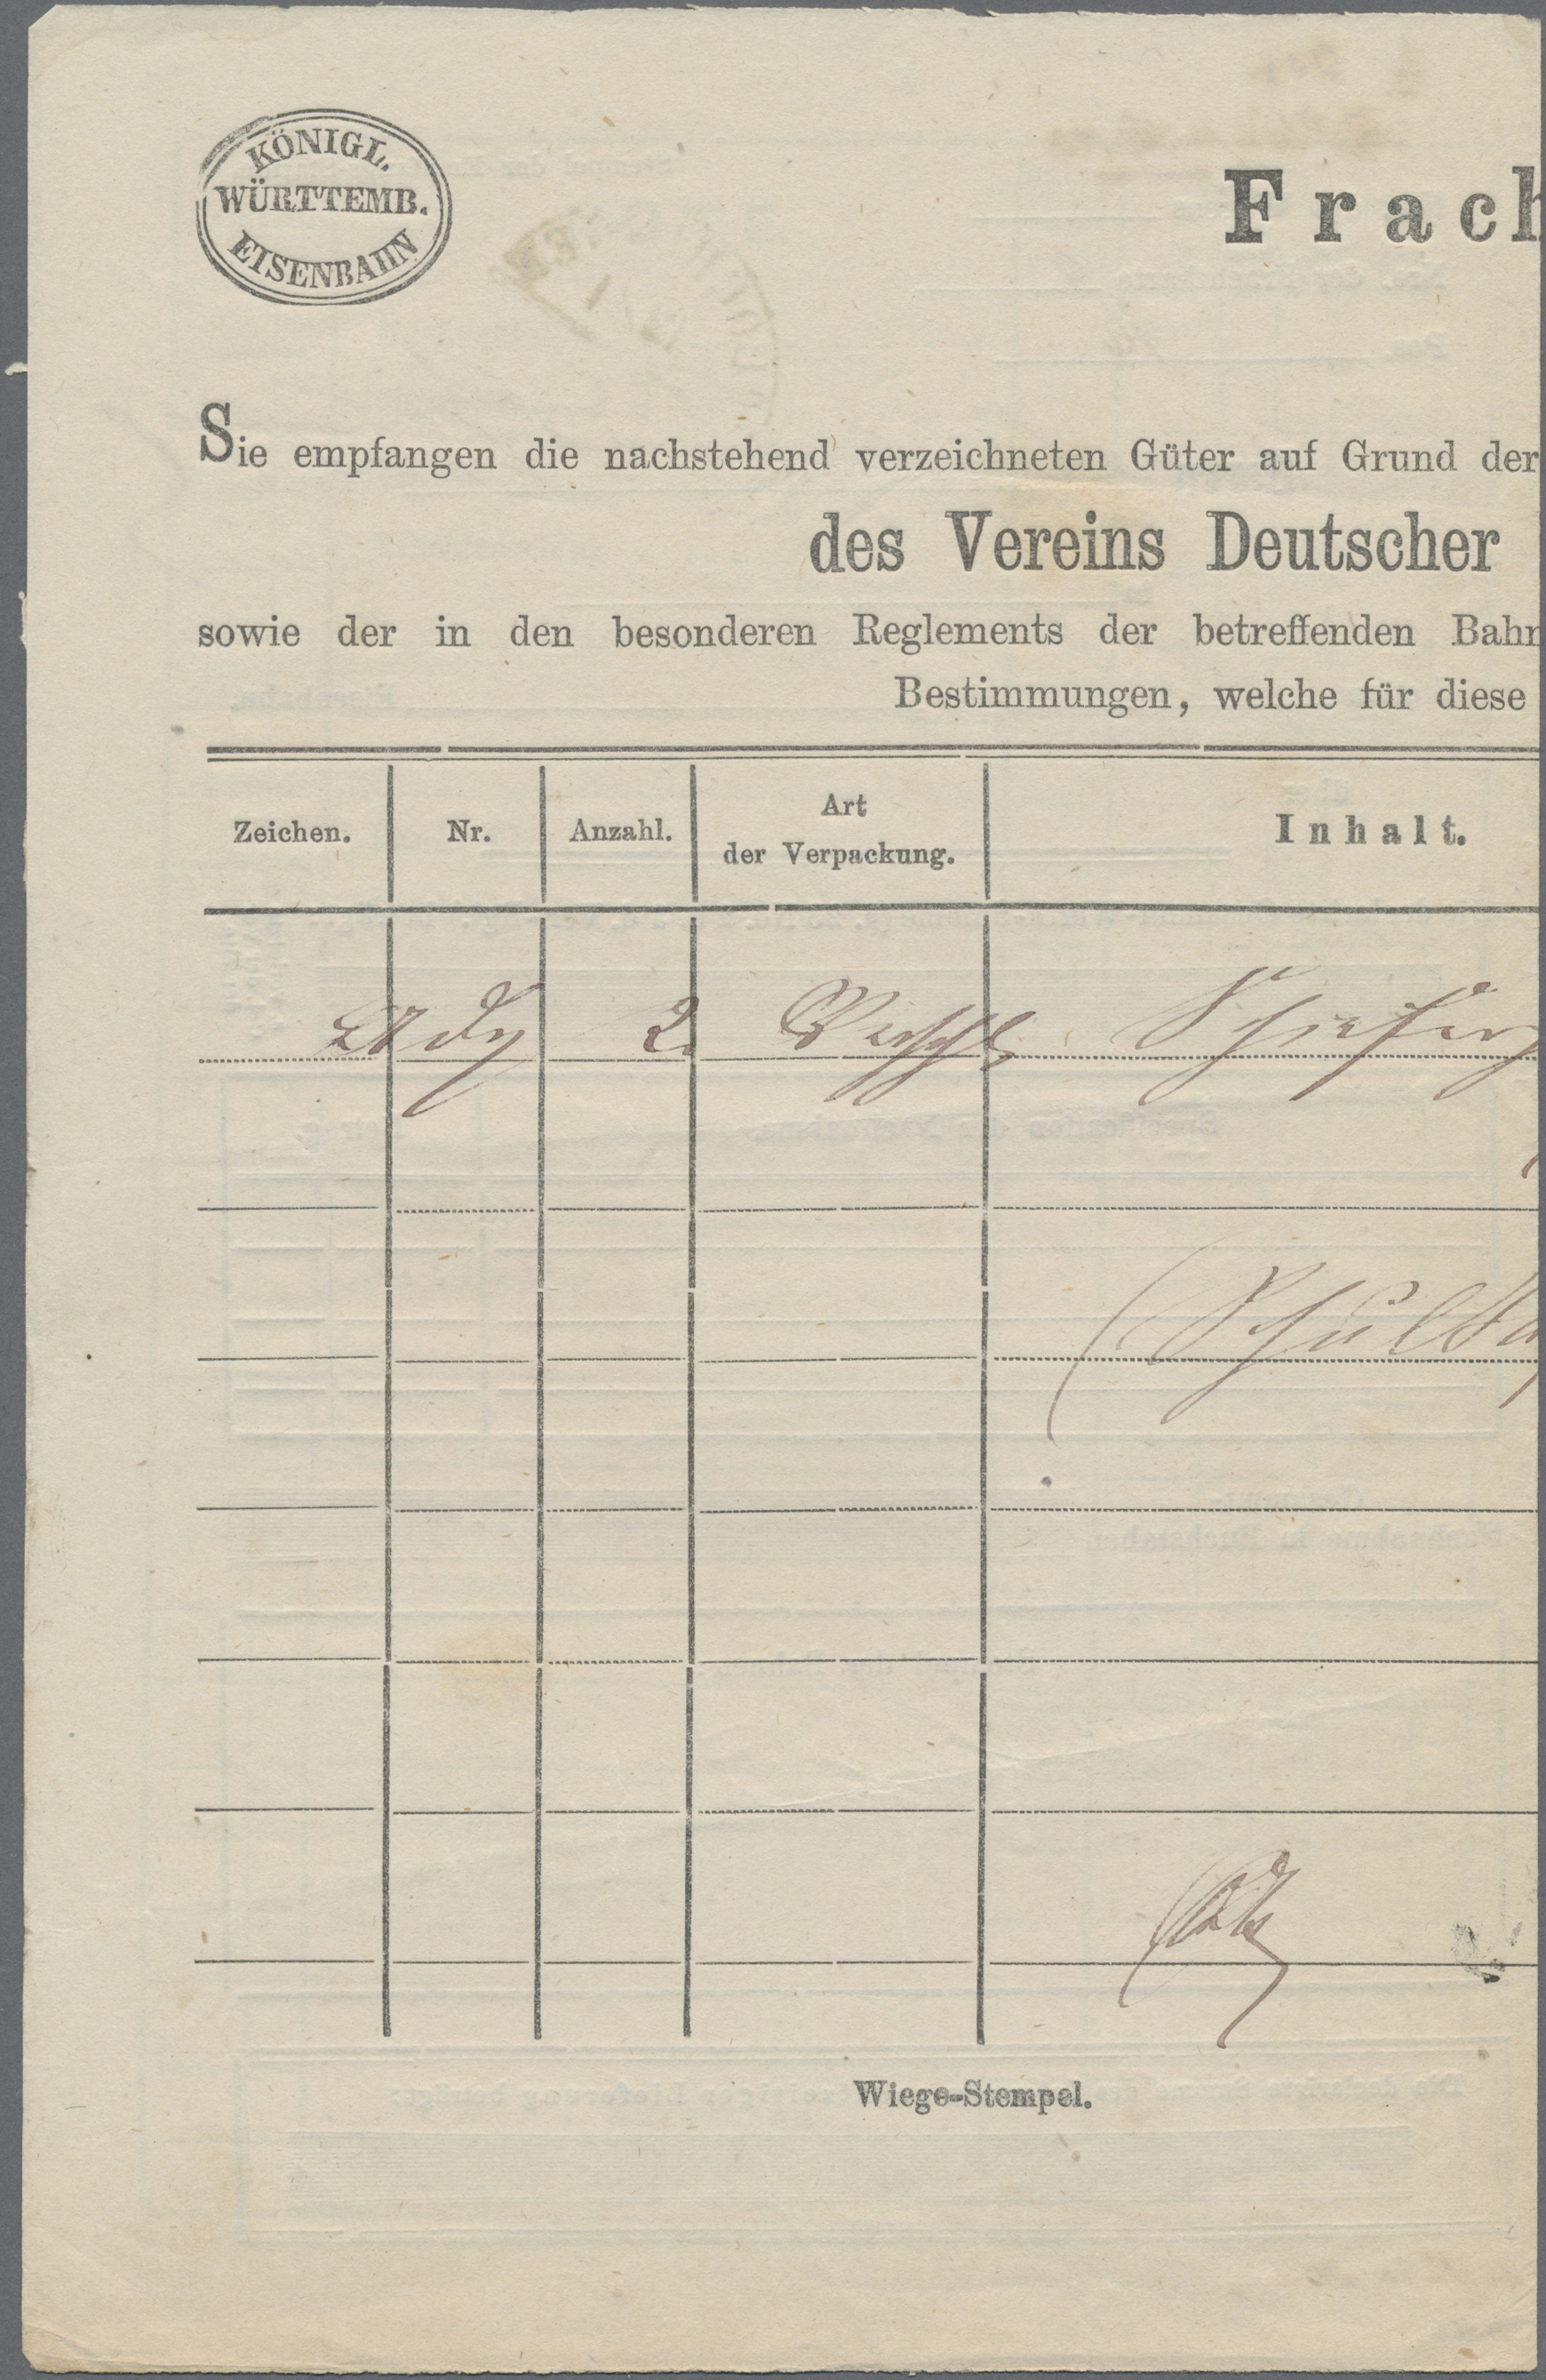 KÖNIGL.
WÜRTTEMB.
EISENBAHN
Frach
Sie empfangen die nachstehend verzeichneten Güter auf Grund der
des Vereins Deutscher
sowie der in den besonderen Reglements der betreffenden Bahn
Bestimmungen, welche für diese
Zeichen. Nr. Anzahl. Art der Verpackung. Inhalt.
2
Wiege-Stempel.